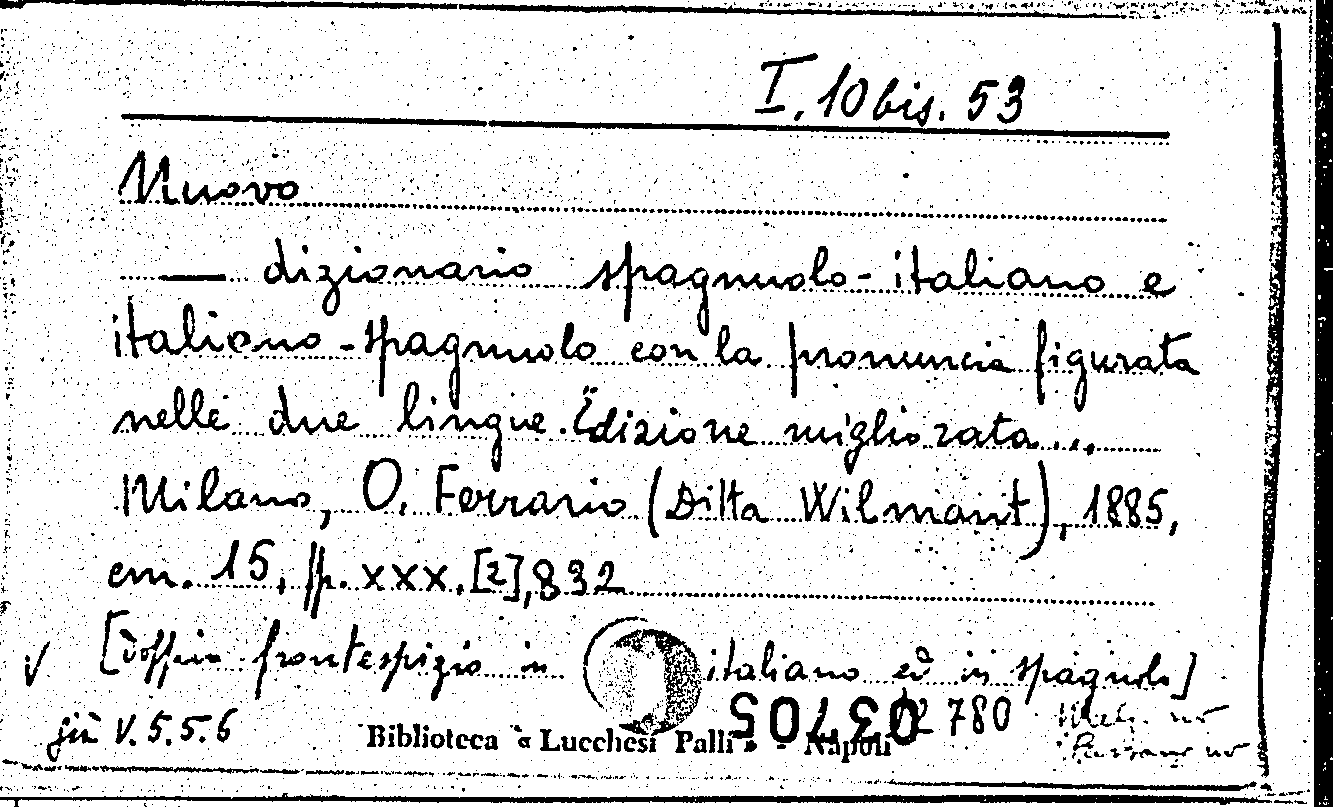 I. 10 bis. 53
Nuovo
— dizionario spagnuolo-italiano e
italiano-spagnuolo con la pronuncia figurata
nelle due lingue. Edizione migliorata...
Milano, O. Ferrario (Ditta Wilmant), 1885,
cm. 15, pp. xxx, [2], 832
[Doppio frontespizio in italiano ed in spagnolo]
già V.5.5.6
Biblioteca « Lucchesi Palli » - Napoli
780